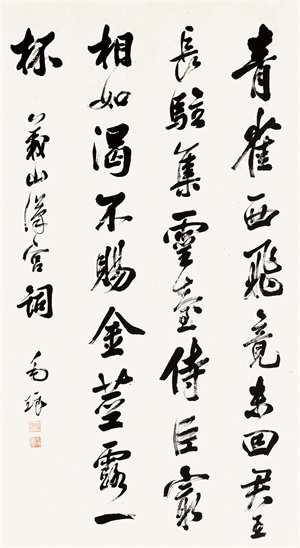 青雀西飛竟未回君王
長駐集靈臺侍臣最
相如渴不賜金莖露一
杯 義山漢宮詞 毛